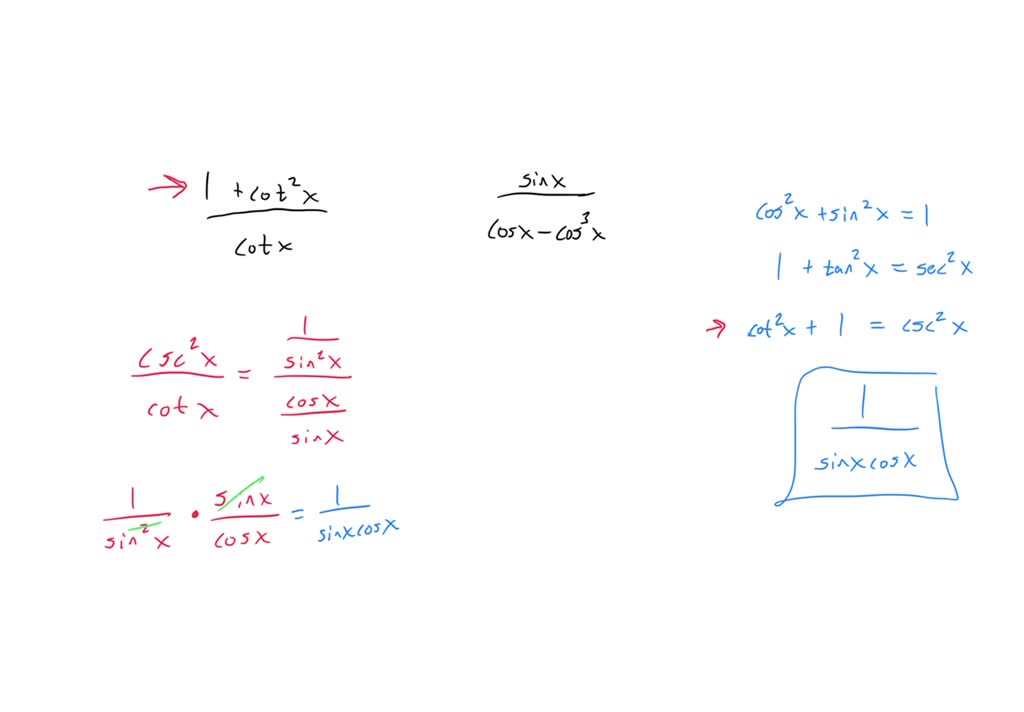 → 1 + cot²x / cot x
sinx / cosx − cos³x
cos²x + sin²x = 1
1 + tan²x = sec²x
→ cot²x + 1 = csc²x
csc²x / cot x = 1 / sin²x / cosx / sinx
1 / sin²x • sinx / cosx = 1 / sinxcosx
1 / sinxcosx